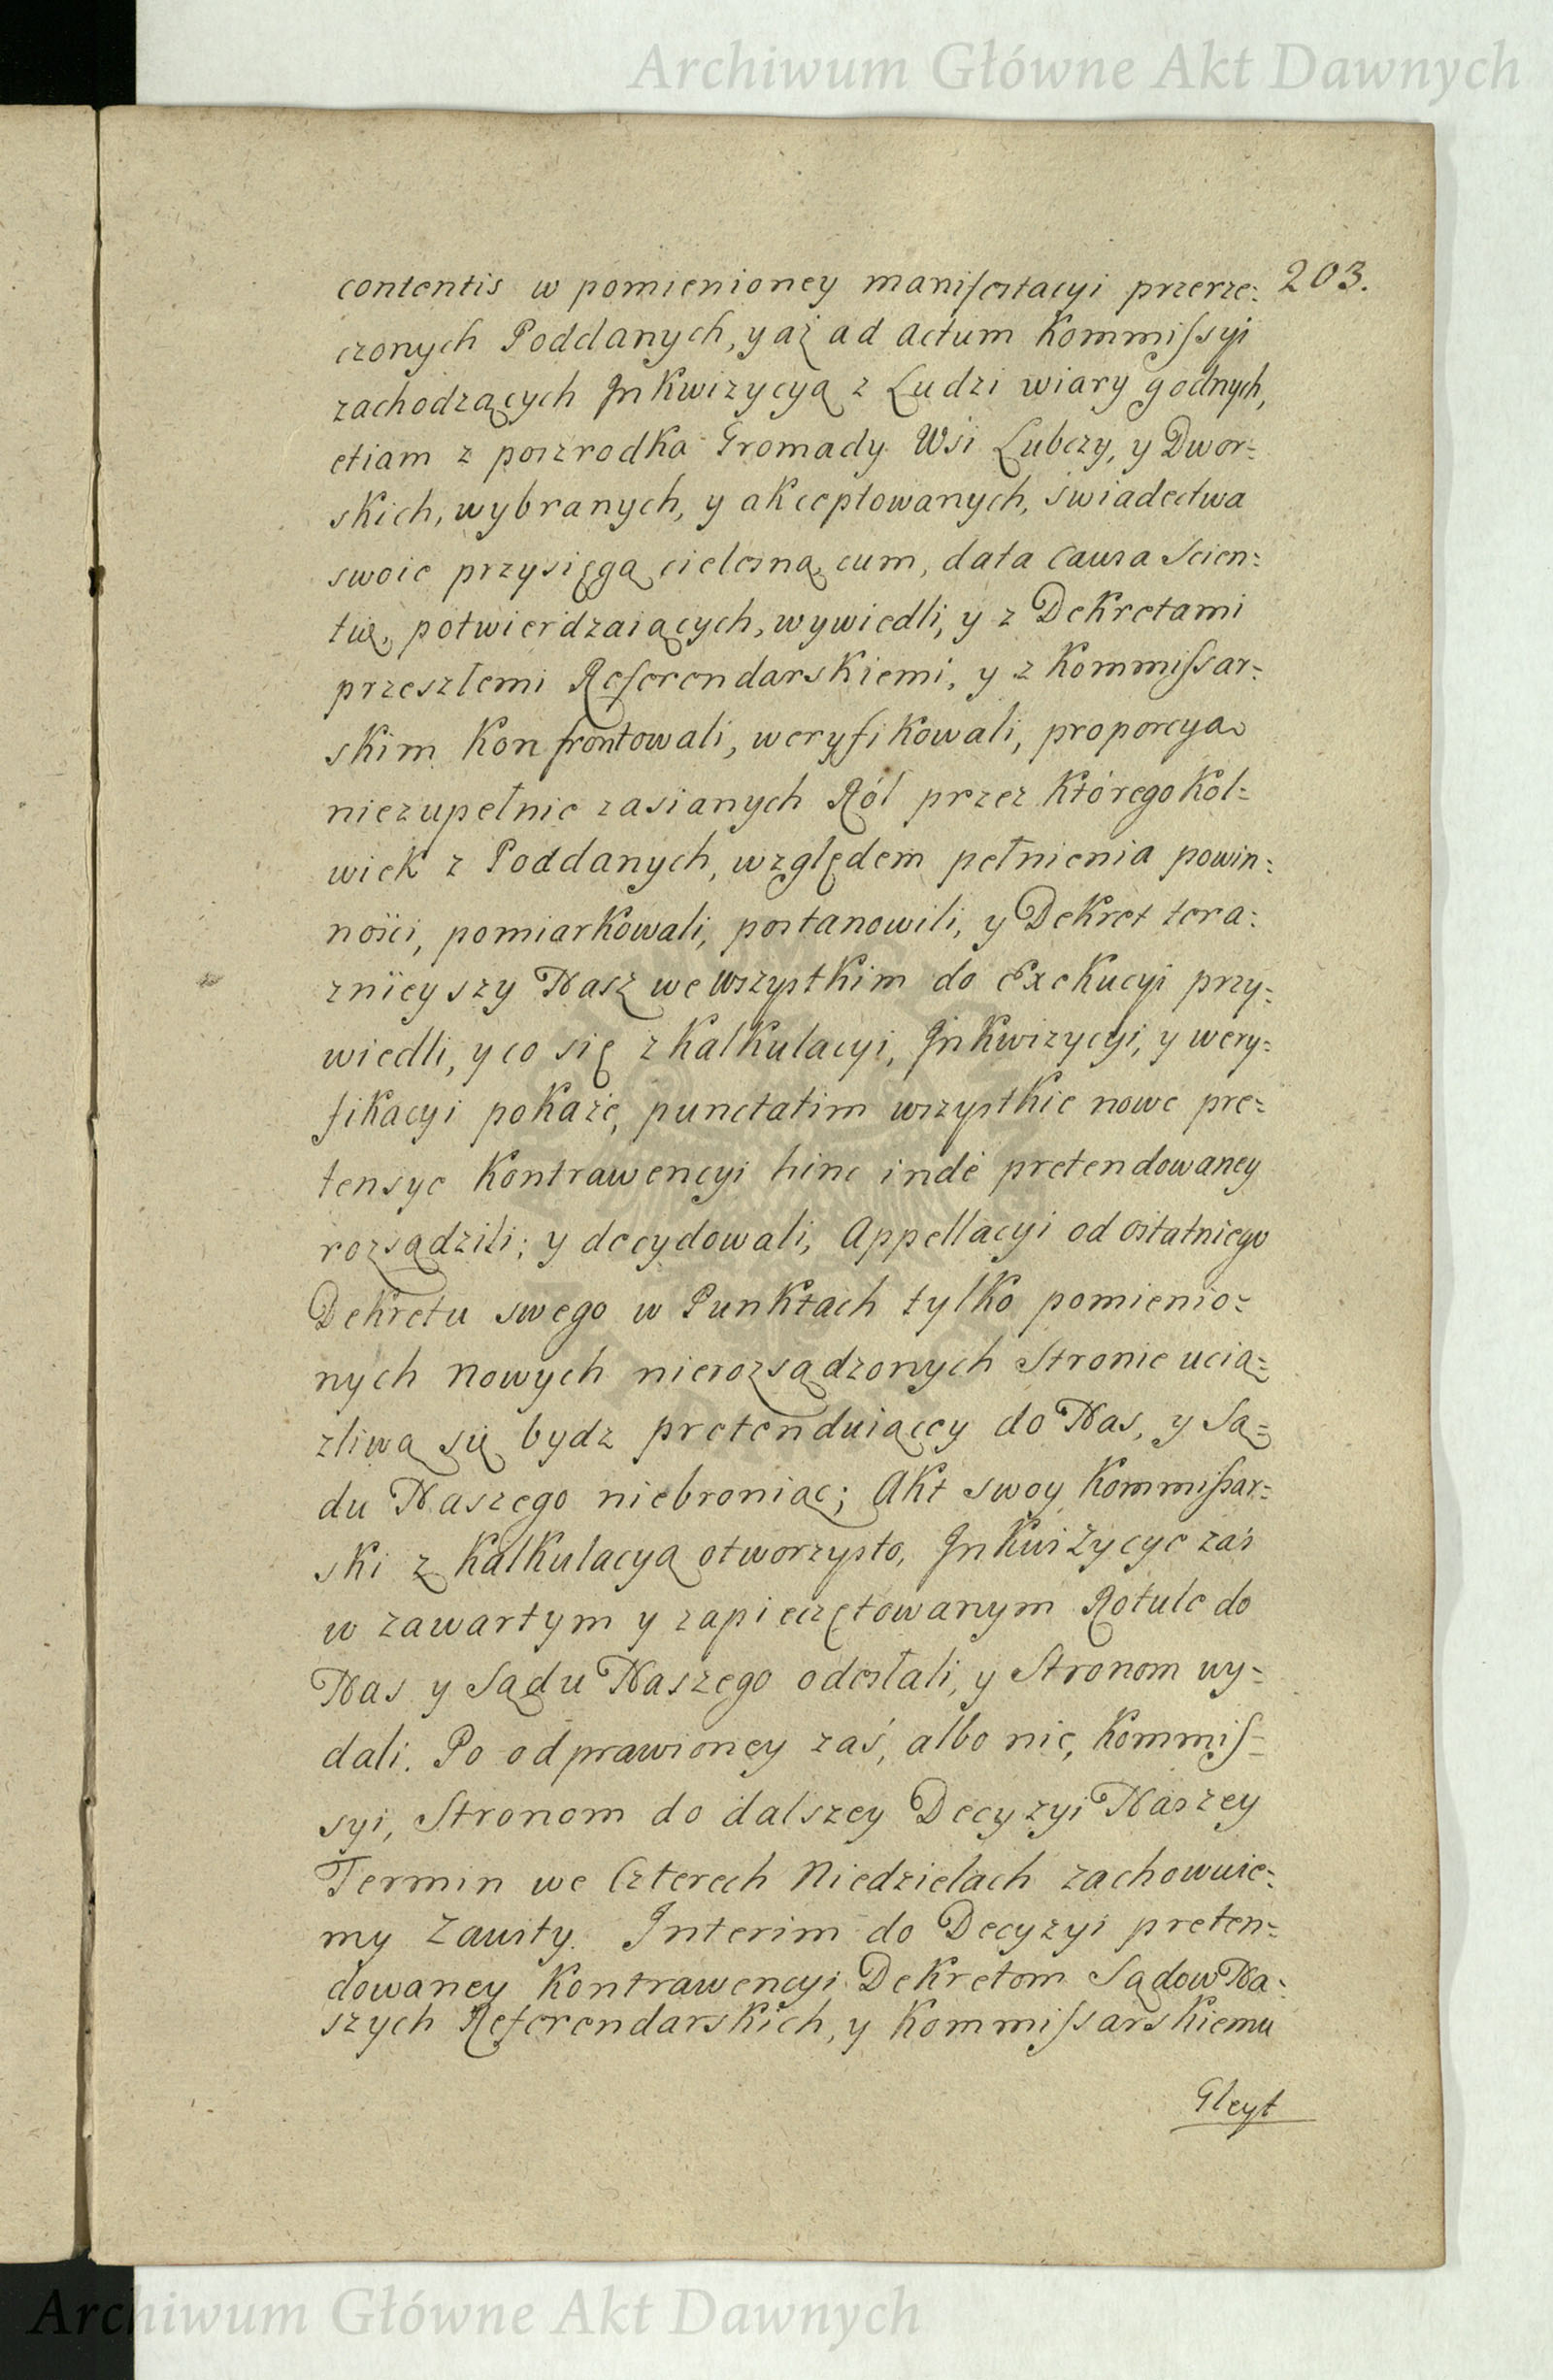 Archiwum Główne Akt Dawnych
203.
contentis w pomienioney manifestacyi przerze:
czonych Poddanych, y aż ad actum Kommissyi
zachodzących Inkwizycyą z Ludzi wiary godnych,
etiam z poszrodka Gromady Wsi Lubczy, y Dwor:
skich, wybranych, y akceptowanych, swiadectwa
swoie przysięgą cielesną, cum, data causa Scien:
tiæ, potwierdzaiących, wywiedli, y z Dekretami
przeszłemi Referendarskiemi, y z Kommissar:
skim Konfrontowali, weryfikowali, proporcyą
niezupełnie zasianych Ról przez Któregokol:
wiek z Poddanych, względem pełnienia powin:
ności, pomiarkowali, postanowili, y Dekret tera:
znieyszy Nasz we wszystkim do Exekucyi przy:
wiedli, y co się z Kalkulacyi, Inkwizycyi, y wery:
fikacyi pokaże, punctatim wszystkie nowe pre:
tensye Kontrawencyi hinc indè pretendowaney
rozsądzili; y decydowali, Appellacyi od ostatniego
Dekretu swego w Punktach tylko pomienio:
nych nowych nierozsądzonych Stronie ucią:
zliwą się bydz pretenduiącey do Nas, y Są:
du Naszego niebroniąc; Akt swoy Kommissar:
ski z Kalkulacyą otworzysto, Inkwizycye zaś
w zawartym y zapieczętowanym Rotule do
Nas y Sądu Naszego odesłali, y Stronom wy:
dali. Po odprawioney zaś, albo nie, Kommis:
syi, Stronom do dalszey Decyzyi Naszey
Termin we Czterech Niedzielach zachowuie:
my Zawity. Interim do Decyzyi preten:
dowaney Kontrawencyi Dekretom Sądow Na:
szych Referendarskich, y Kommissarskiemu
Gleyt
Archiwum Główne Akt Dawnych